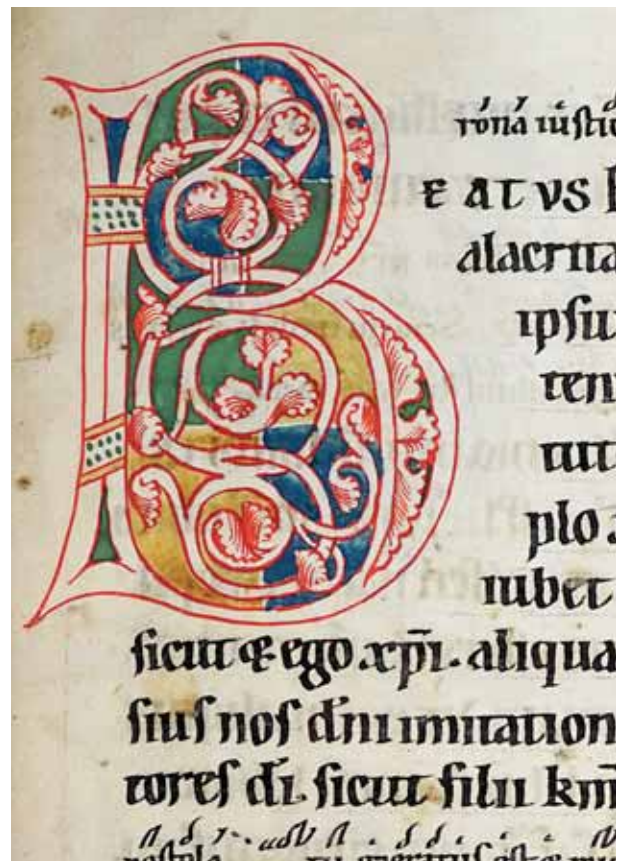 róná iusti
B
E ATVS
alacrita
ipsu
ten
tut
plo
iubet
sicut & ego xp̄i. aliqua
sius nos dn̄i imitation
tores dī. sicut filii km̄